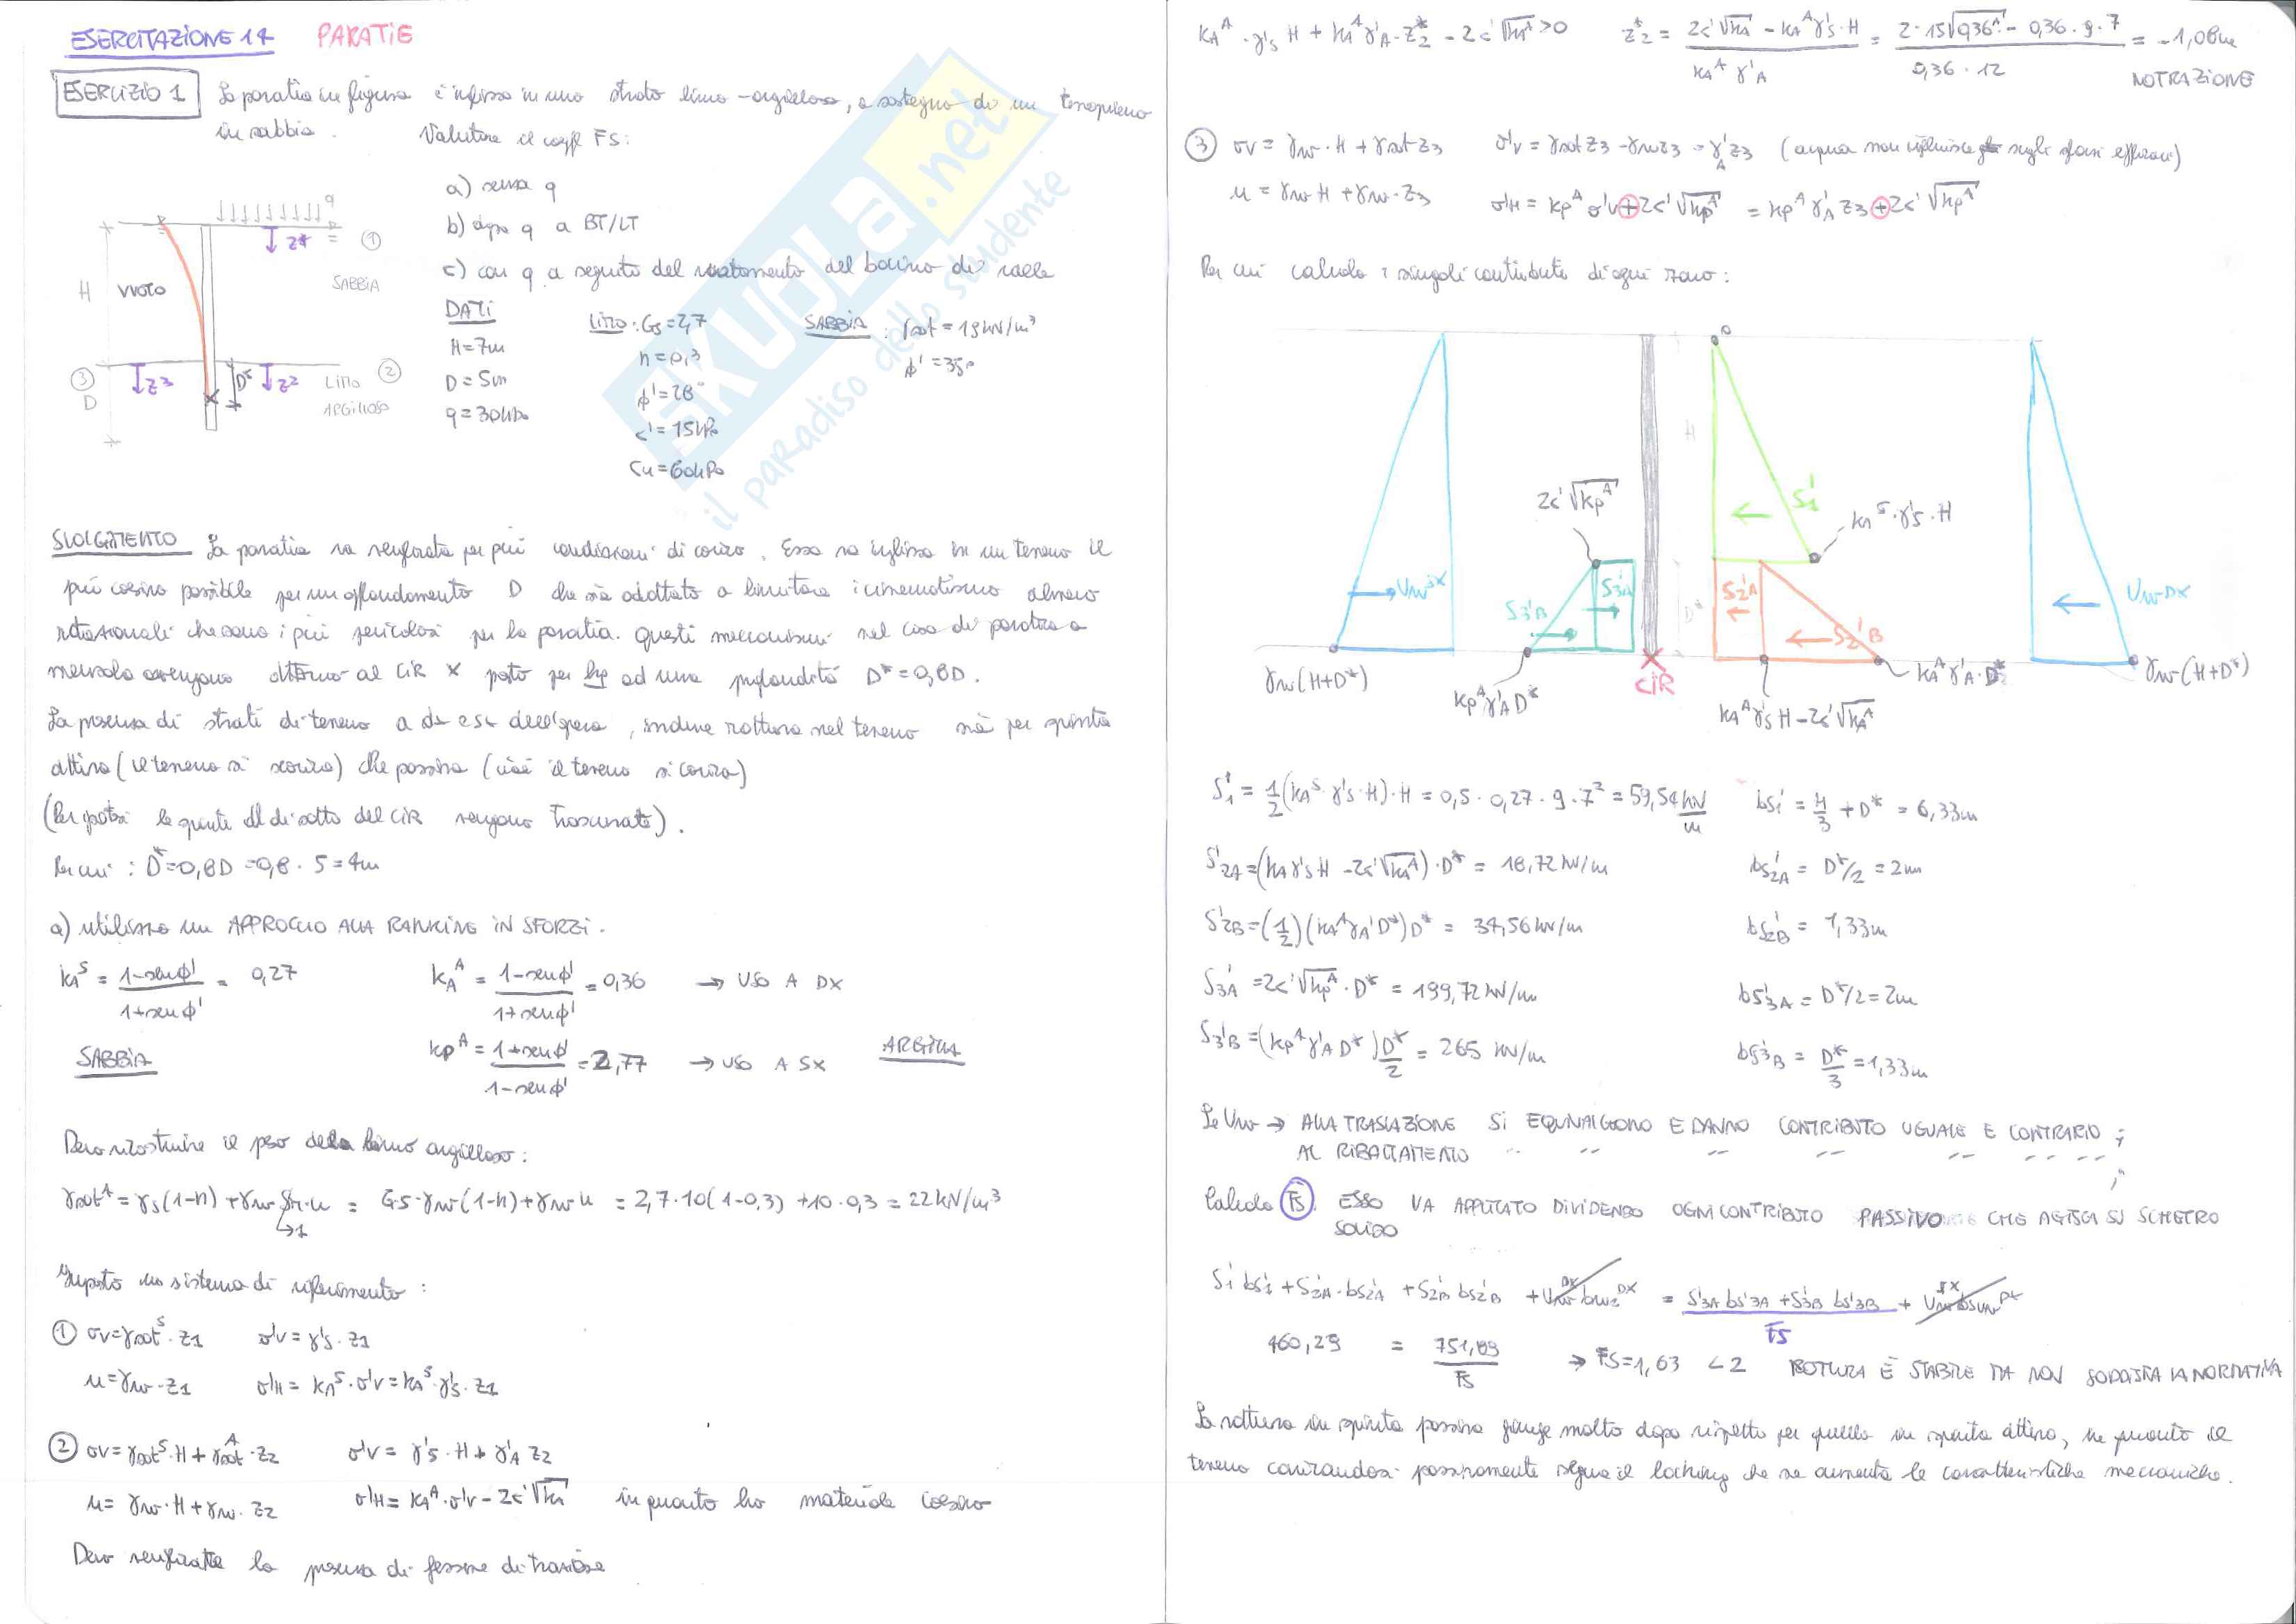 ESERCITAZIONE 14 PARATIE
ESERCIZIO 1 La paratia in figura è infissa in uno strato limo-argilloso, a sostegno di un terrapieno
in sabbia. Valutare il coeff FS:
a) senza q
b) dopo q a BT/LT
c) con q a seguito del svuotamento del bacino di valle
q
z1
①
H VUOTO
SABBIA
③ z3 D* z2 LIMO ②
D ARGILLOSO
DATI
H=7m
D=5m
q=30kPa
LIMO: Gs=2,7
n=0,3
ϕ'=28°
c'=15kPa
cu=60kPa
SABBIA: γsat=19kN/m³
ϕ'=35°
SKUOLA.net
il paradiso dello studente
SVOLGIMENTO La paratia va verificata per più condizioni di carico. Essa va infissa in un terreno il
più coesivo possibile per un affondamento D che sia adottato a limitare i cinematismo almeno
rotazionali che sono i più pericolosi per la paratia. Questi meccanismi nel caso di paratia a
mensola avvengono attorno al CIR X posto per hp ad una profondità D*=0,8D.
La presenza di strati di terreno a dx e sx dell'opera, induce rottura nel terreno sia per spinta
attiva (il terreno si scarica) che passiva (cioè il terreno si carica)
(Per ipotesi le spinte al di sotto del CIR vengono trascurate).
Per cui: D*=0,8D=0,8·5=4m
a) utilizzo un APPROCCIO ALLA RANKINE IN SFORZI.
kA^S = (1-senϕ')/(1+senϕ') = 0,27 kA^A = (1-senϕ')/(1+senϕ') = 0,36 → USO A DX
SABBIA kp^A = (1+senϕ')/(1-senϕ') = 2,77 → USO A SX ARGILLA
Devo ricostruire il peso della limo argilloso:
γsat^A = γs(1-n)+γw·Sr·n = Gs·γw(1-n)+γw·n = 2,7·10(1-0,3)+10·0,3 = 22kN/m³
↳1
Imposto un sistema di riferimento:
① σv=γsat^S·z1 σ'v=γ's·z1
u=γw·z1 σ'H=kA^S·σ'v=kA^S·γ's·z1
② σv=γsat^S·H+γsat^A·z2 σ'v=γ's·H+γ'A z2
u=γw·H+γw·z2 σ'H=kA^A·σ'v-2c'√kA in quanto ho materiale coesivo
Devo verificare la presenza di fessure di trazione
kA^A·γ's H+kA^A γ'A·z2*-2c'√kA^A>0 z2* = (2c'√kA - kA^A γ's·H)/(kA^A γ'A) = (2·15√0,36 - 0,36·9·7)/(0,36·12) = -1,08m
NO TRAZIONE
③ σv=γw·H+γsat z3 σ'v=γsat z3-γw z3=γ'A z3 (acqua non influisce sugli sforzi efficaci)
u=γw H+γw·z3 σ'H=kp^A σ'v+2c'√kp^A = kp^A γ'A z3+2c'√kp^A
Per cui calcolo i singoli contributi di ogni zona:
0
H
D*
2c'√kp^A
S'1
kA^S·γ's·H
Uw sx
S'3B
S'3A
S'2A
S'2B
Uw DX
γw(H+D*)
kp^A γ'A D*
CIR
kA^A γ's H-2c'√kA^A
kA^A γ'A·D*
γw(H+D*)
S'1 = 1/2(kA^S γ's·H)·H = 0,5·0,27·9·7² = 59,54 kN/m bs'1 = H/3+D* = 6,33m
S'2A=(kA γ's H-2c'√kA^A)·D* = 18,72 kN/m bs'2A = D*/2 = 2m
S'2B=(1/2)(kA^A γA' D*)D* = 34,56 kN/m bs'2B = 1,33m
S'3A=2c'√kp^A·D* = 199,72 kN/m bs'3A = D*/2=2m
S'3B=(kp^A γ'A D*)D*/2 = 265 kN/m bs'3B = D*/3=1,33m
Le Uw → ALLA TRASLAZIONE SI EQUIVALGONO E DANNO CONTRIBUTO UGUALE E CONTRARIO;
AL RIBALTAMENTO " " " " " " " ;
Calcolo FS. ESSO VA APPLICATO DIVIDENDO OGNI CONTRIBUTO PASSIVO CHE AGISCA SU SCHELETRO
SOLIDO
S'1 bs'1+S'2A·bs'2A+S'2B bs'2B+Uw^DX bw^DX = (S'3A bs'3A+S'3B bs'3B)/FS + Uw^SX
460,29 = 751,89/FS → FS=1,63 <2 ROTTURA È STABILE MA NON SODDISFA LA NORMATIVA
La rottura in spinta passiva giunge molto dopo rispetto per quella in spinta attiva, in quanto il
terreno caricandosi passivamente segue il locking che ne aumenta le caratteristiche meccaniche.